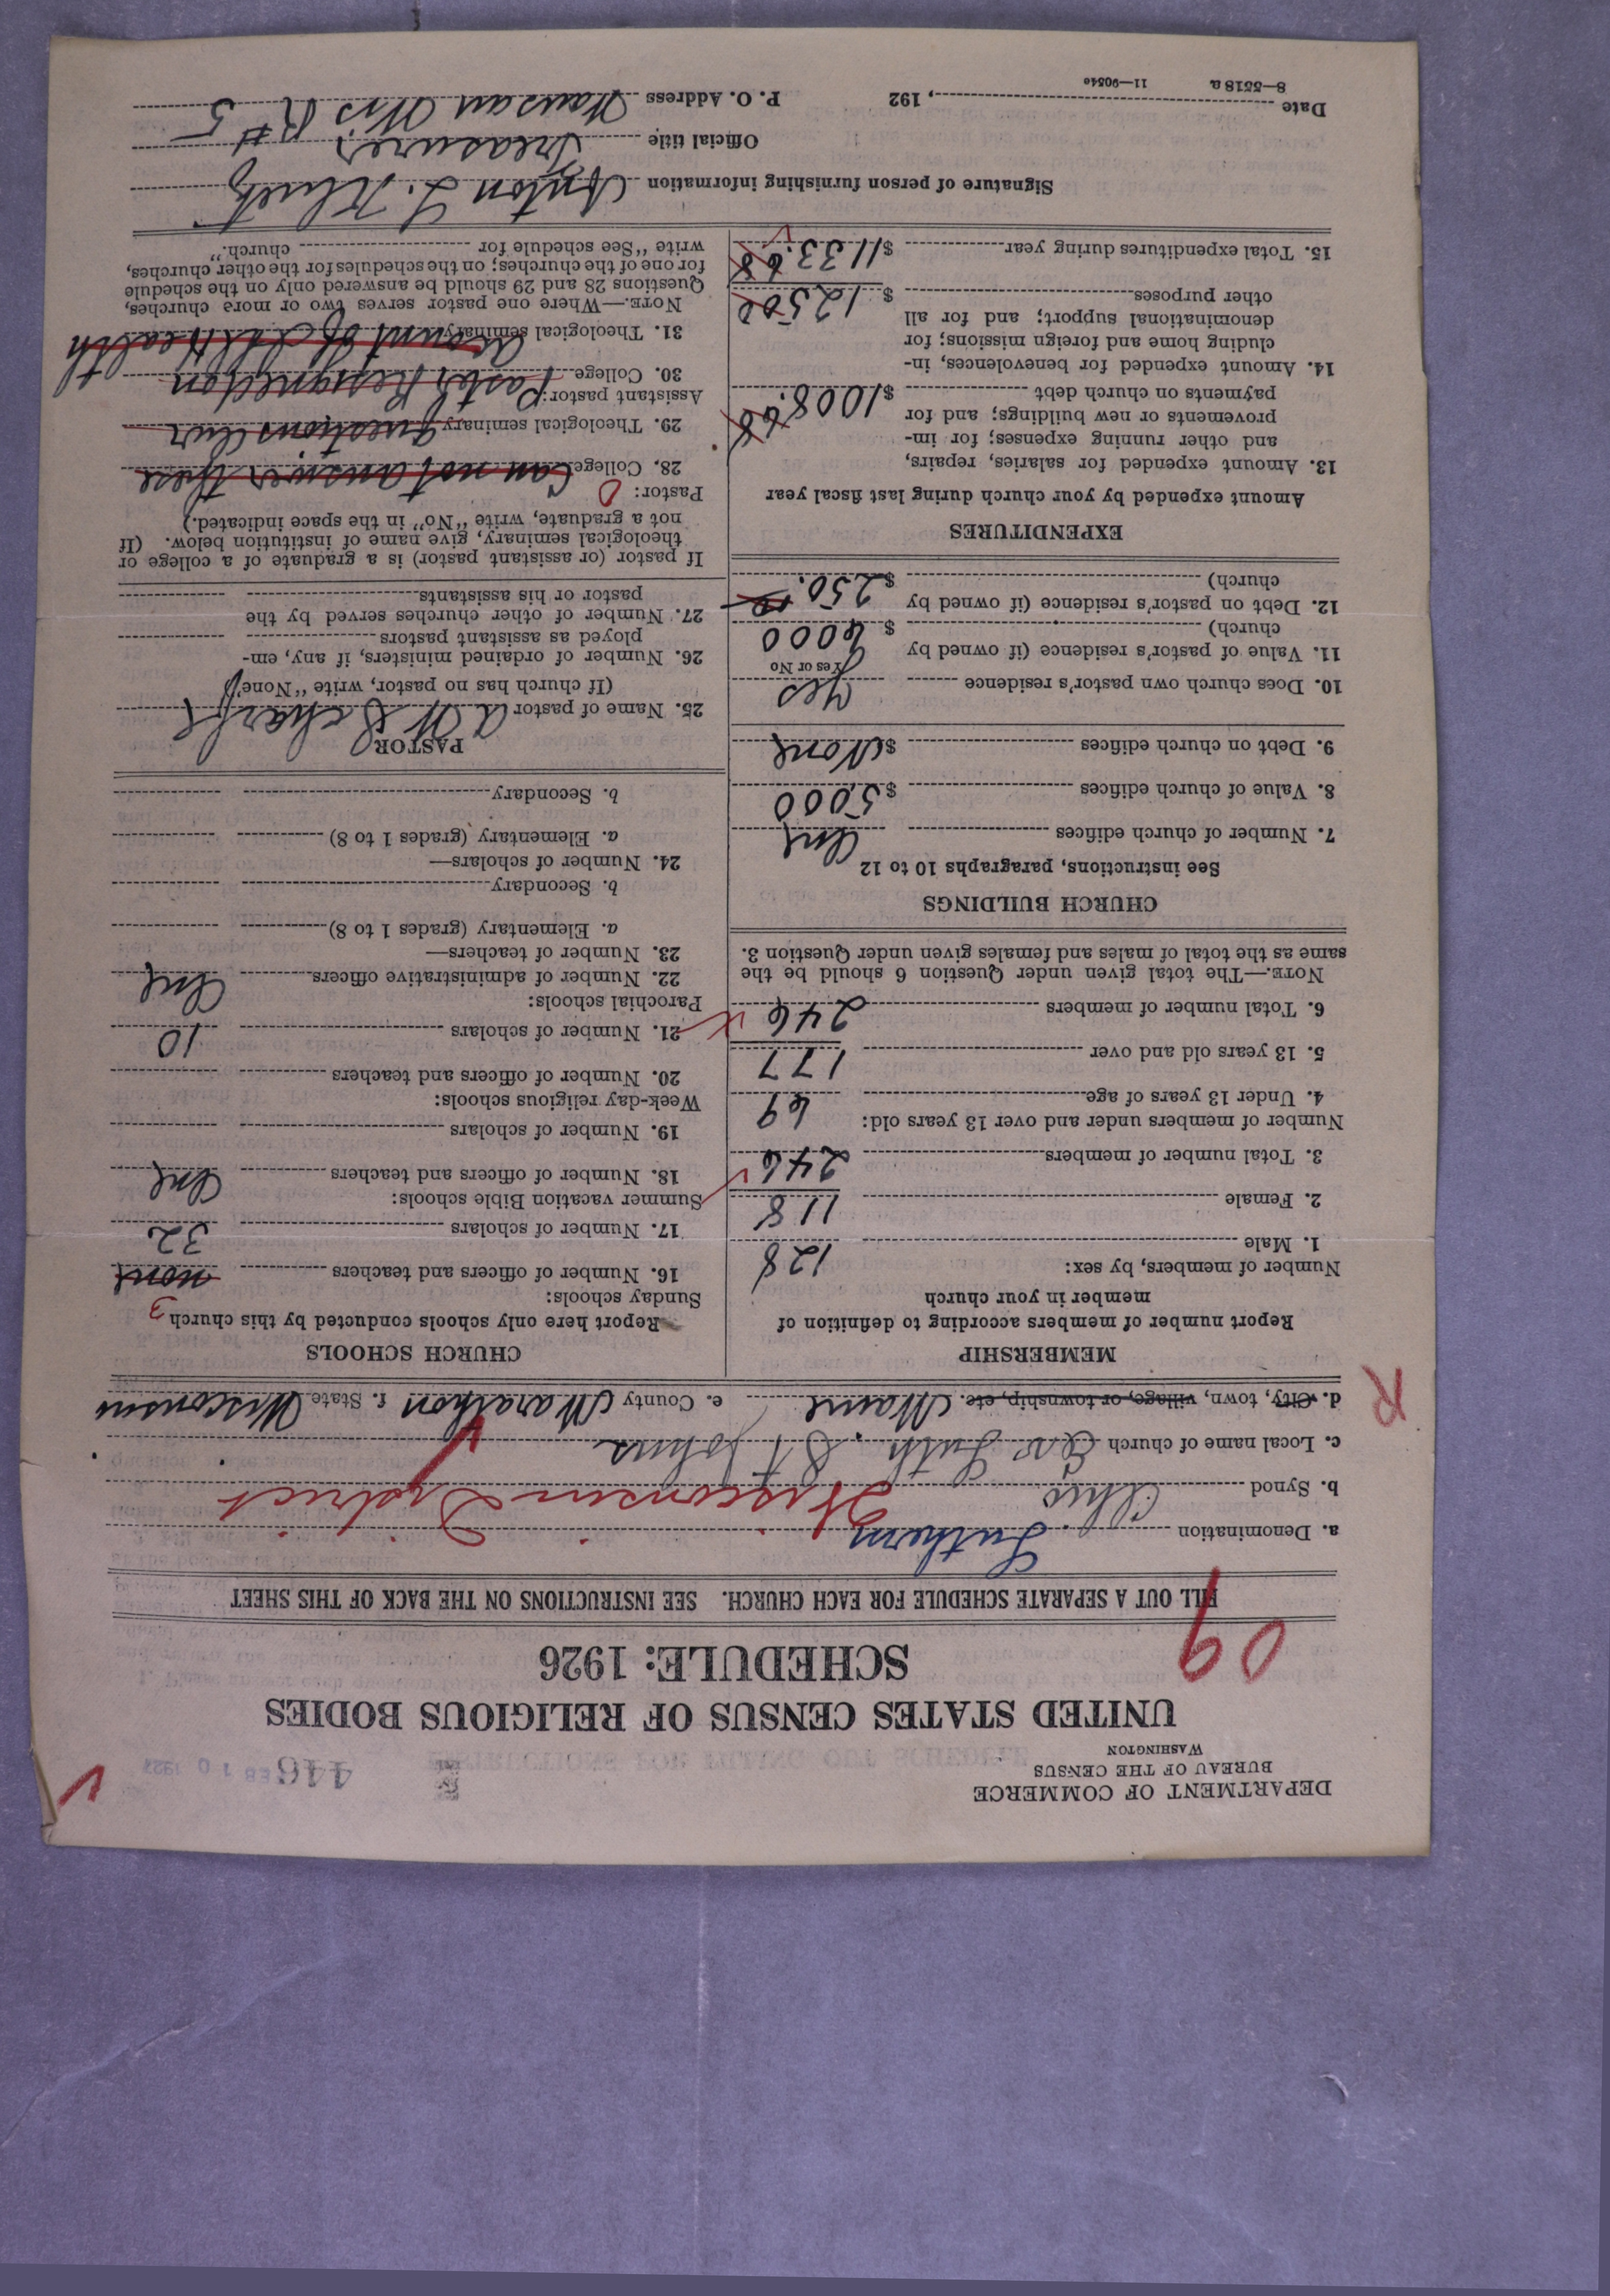 DEPARTMENT OF COMMERCE
BUREAU OF THE CENSUS
WASHINGTON
446
FEB 10 1927
UNITED STATES CENSUS OF RELIGIOUS BODIES
SCHEDULE: 1926
09
FILL OUT A SEPARATE SCHEDULE FOR EACH CHURCH. SEE INSTRUCTIONS ON THE BACK OF THIS SHEET
a. Denomination Lutheran
b. Synod Ohio Wisconsin District
c. Local name of church Ev Luth. St Johns
d. City, town, village, or township, etc. Maine e. County Marathon f. State Wisconsin
R
MEMBERSHIP
Report number of members according to definition of
member in your church
Number of members, by sex:
1. Male 128
2. Female 118
3. Total number of members 246
Number of members under and over 13 years old:
4. Under 13 years of age 69
5. 13 years old and over 177
6. Total number of members 246
NOTE.—The total given under Question 6 should be the
same as the total of males and females given under Question 3.
CHURCH BUILDINGS
See instructions, paragraphs 10 to 12
7. Number of church edifices One
8. Value of church edifices $5,000
9. Debt on church edifices $None
10. Does church own pastor's residence Yes
Yes or No
11. Value of pastor's residence (if owned by
church) $6000
12. Debt on pastor's residence (if owned by
church) $250.
EXPENDITURES
Amount expended by your church during last fiscal year
13. Amount expended for salaries, repairs,
and other running expenses; for im-
provements or new buildings; and for
payments on church debt $1008.68
14. Amount expended for benevolences, in-
cluding home and foreign missions; for
denominational support; and for all
other purposes $12500
15. Total expenditures during year $1133.68
CHURCH SCHOOLS
Report here only schools conducted by this church
Sunday schools: 3
16. Number of officers and teachers none
17. Number of scholars 32
Summer vacation Bible schools:
18. Number of officers and teachers One
19. Number of scholars
Week-day religious schools:
20. Number of officers and teachers
21. Number of scholars 10
Parochial schools:
22. Number of administrative officers One
23. Number of teachers—
a. Elementary (grades 1 to 8)
b. Secondary
24. Number of scholars—
a. Elementary (grades 1 to 8)
b. Secondary
PASTOR
25. Name of pastor A W Scharf
(If church has no pastor, write "None")
26. Number of ordained ministers, if any, em-
ployed as assistant pastors
27. Number of other churches served by the
pastor or his assistants
If pastor (or assistant pastor) is a graduate of a college or
theological seminary, give name of institution below. (If
not a graduate, write "No" in the space indicated.)
Pastor: 0
28. College Can not answer these
29. Theological seminary questions Our
Assistant pastor:
30. College Pastor Resigned on
31. Theological seminary account of Ill Health
NOTE.—Where one pastor serves two or more churches,
Questions 28 and 29 should be answered only on the schedule
for one of the churches; on the schedules for the other churches,
write "See schedule for church."
Signature of person furnishing information Anton L.
Official title Treasurer
Date , 192 P. O. Address Wausau Wis R # 5
8—5518 a 11—9054